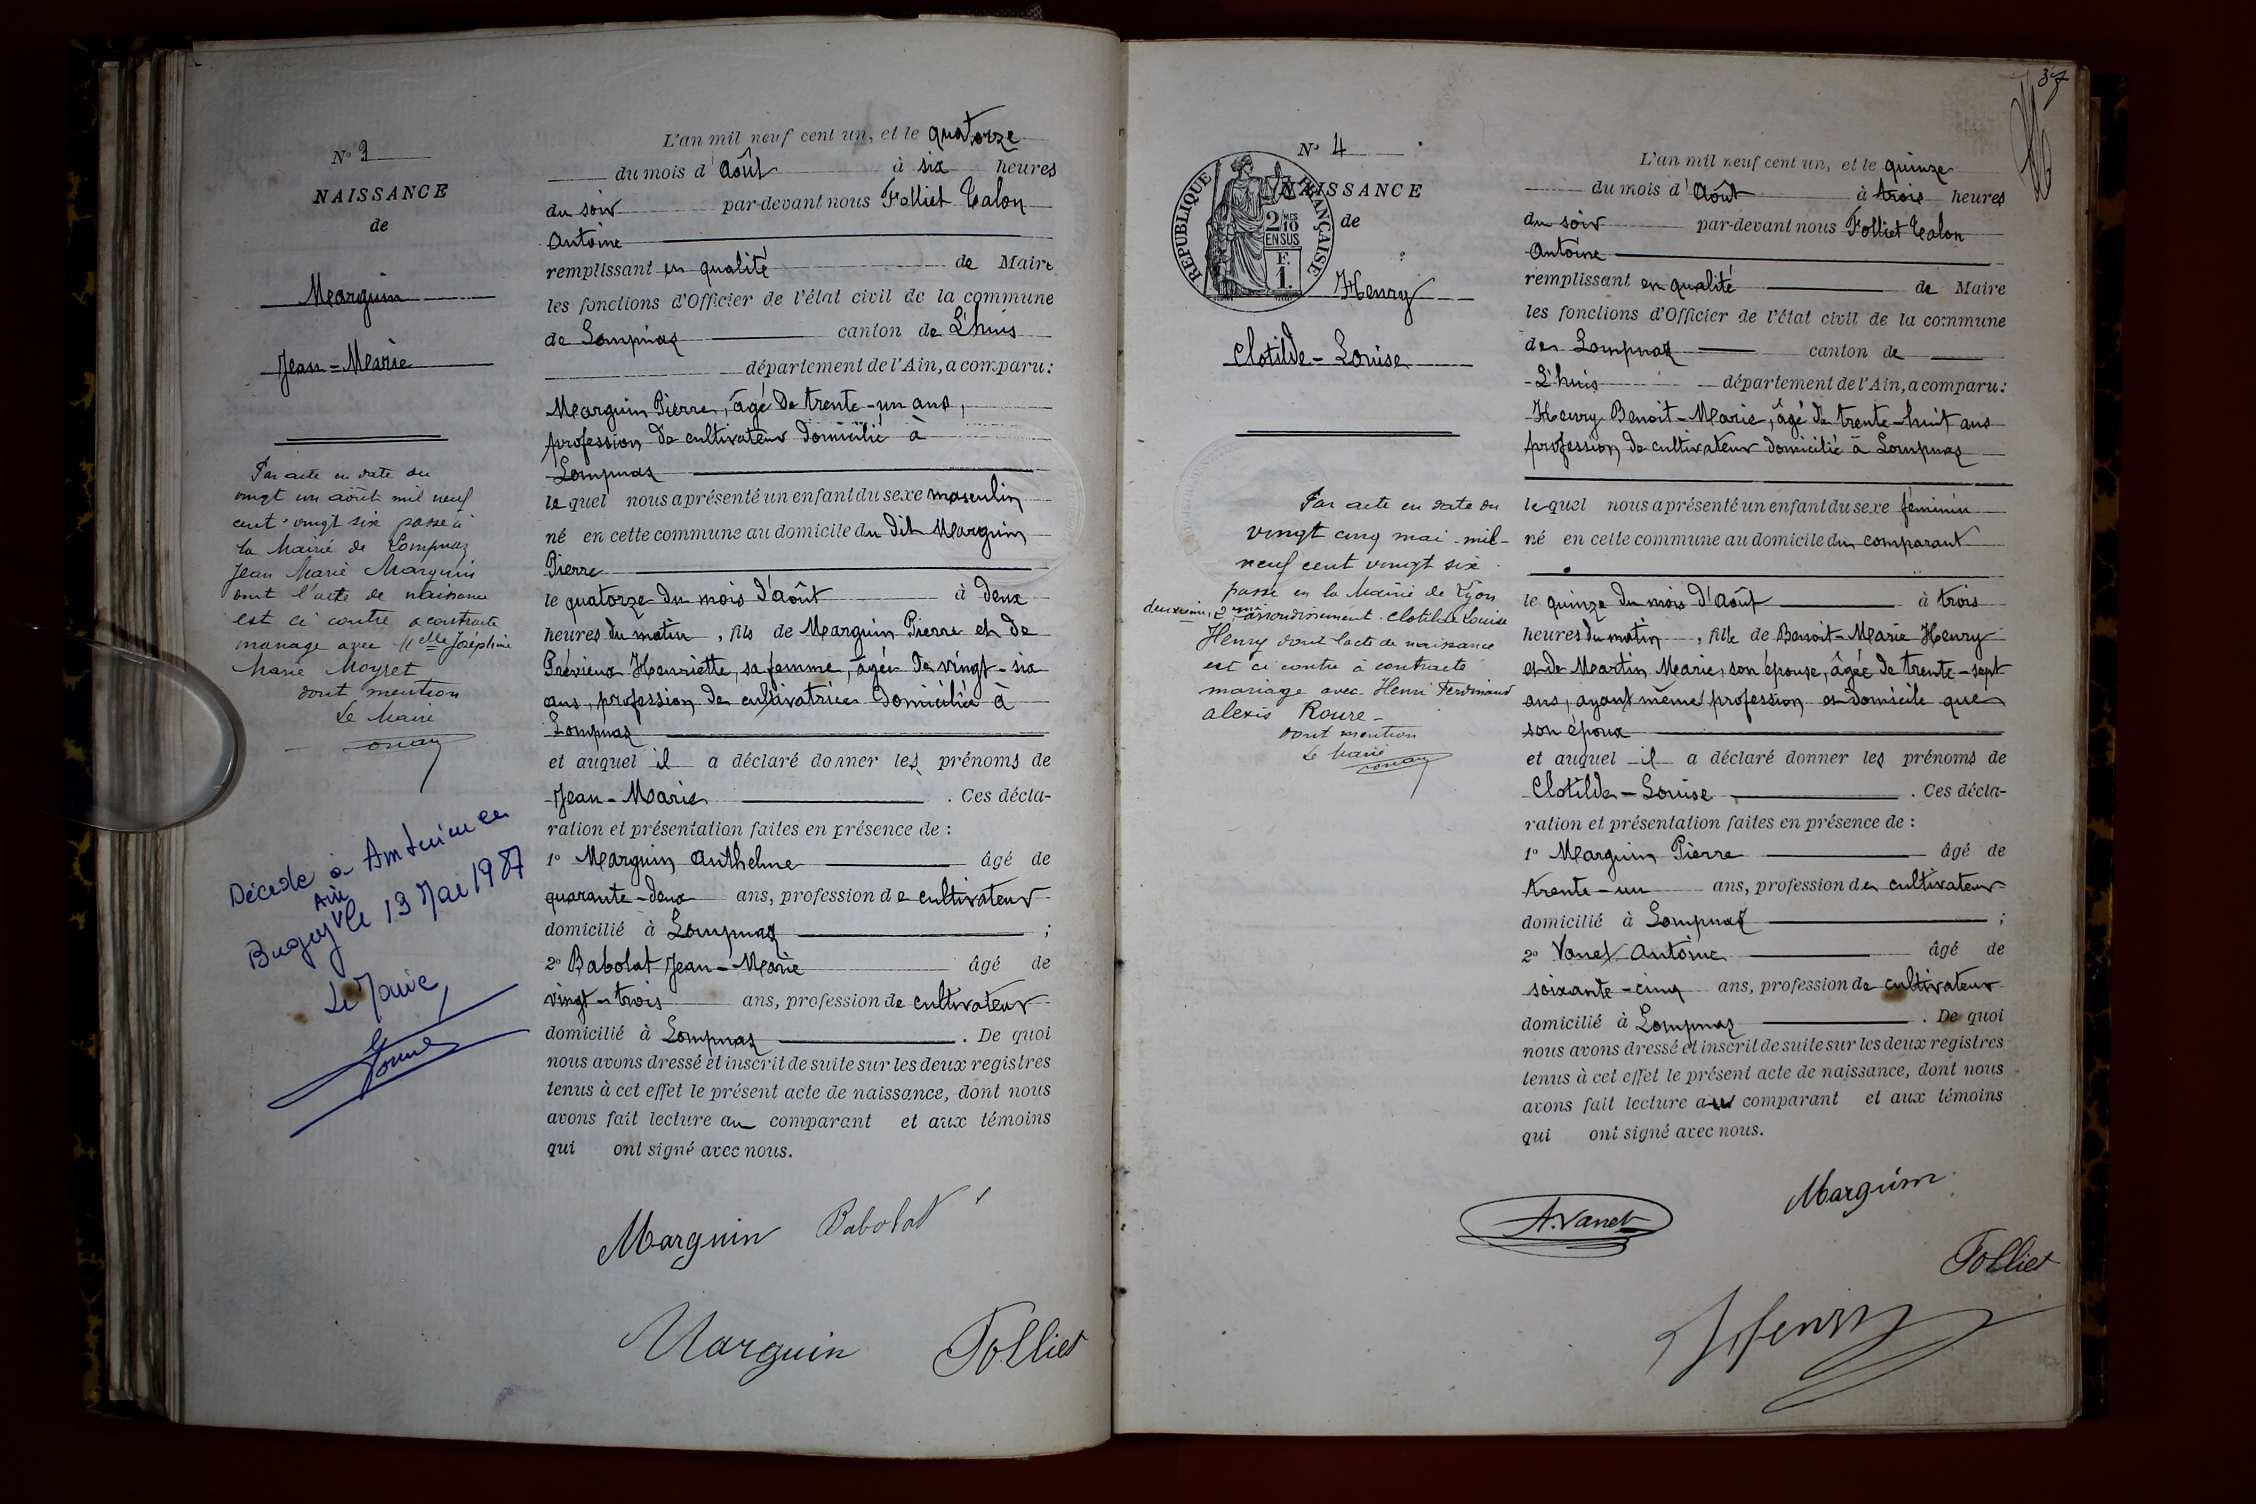 N° 3
NAISSANCE
de
Marguin
Jean=Marie
Par acte en date du
vingt un août mil neuf
cent vingt six passé à
la Mairie de Lompnaz
Jean Marie Marguin
dont l'acte de naissance
est ci contre a contracté
mariage avec Melle Joséphine
Marie Moyret
dont mention
Le Maire
Décédé à Ambérieu en
Ain
Bugey le 13 Mai 1987
Le Maire,
L'an mil neuf cent un, et le quatorze
du mois d'Août à six heures
du soir par-devant nous Folliet Talon
Antoine
remplissant en qualité de Maire
les fonctions d'Officier de l'état civil de la commune
de Lompnaz canton de L'huis
département de l'Ain, a comparu:
Marguin Pierre, âgé de trente-un ans,
profession de cultivateur domicilié à
Lompnaz
lequel nous a présenté un enfant du sexe masculin
né en cette commune au domicile du dit Marguin
Pierre
le quatorze du mois d'août à deux
heures du matin, fils de Marguin Pierre et de
Prévieux Henriette, sa femme, âgée de vingt-six
ans, profession de cultivatrice domiciliée à
Lompnaz
et auquel il a déclaré donner les prénoms de
Jean-Marie. Ces décla-
ration et présentation faites en présence de :
1° Marguin Anthelme âgé de
quarante-deux ans, profession de cultivateur
domicilié à Lompnaz ;
2° Babolat Jean-Marie âgé de
vingt-trois ans, profession de cultivateur
domicilié à Lompnaz. De quoi
nous avons dressé et inscrit de suite sur les deux registres
tenus à cet effet le présent acte de naissance, dont nous
avons fait lecture au comparant et aux témoins
qui ont signé avec nous.
Marguin Babolat
Marguin Folliet
37
N° 4
NAISSANCE
de
RÉPUBLIQUE FRANÇAISE
2 MES
10
EN SUS
F.
1.
Henry
Clotilde-Louise
Par acte en date du
vingt cinq mai mil-
neuf cent vingt six
passé en la Mairie de Lyon
deuxième, 2me arrondissement. Clotilde Louise
Henry dont l'acte de naissance
est ci contre à contracté
mariage avec Henri Ferdinand
alexis Roure -
dont mention
Le Maire
L'an mil neuf cent un, et le quinze
du mois d'Août à trois heures
du soir par-devant nous Folliet Talon
Antoine
remplissant en qualité de Maire
les fonctions d'Officier de l'état civil de la commune
de Lompnaz canton de
L'huis département de l'Ain, a comparu:
Henry Benoit-Marie, âgé de trente-huit ans
profession de cultivateur domicilié à Lompnaz
lequel nous a présenté un enfant du sexe féminin
né en cette commune au domicile du comparant
le quinze du mois d'Août à trois
heures du matin, fille de Benoit-Marie Henry
et de Martin Marie, son épouse, âgée de trente-sept
ans, ayant même profession et domicile que
son époux
et auquel il a déclaré donner les prénoms de
Clotilde-Louise. Ces décla-
ration et présentation faites en présence de :
1° Marguin Pierre âgé de
trente-un ans, profession de cultivateur
domicilié à Lompnaz ;
2° Vanel Antoine âgé de
soixante-cinq ans, profession de cultivateur
domicilié à Lompnaz. De quoi
nous avons dressé et inscrit de suite sur les deux registres
tenus à cet effet le présent acte de naissance, dont nous
avons fait lecture au comparant et aux témoins
qui ont signé avec nous.
Marguin
A. Vanel
Folliet
Henry